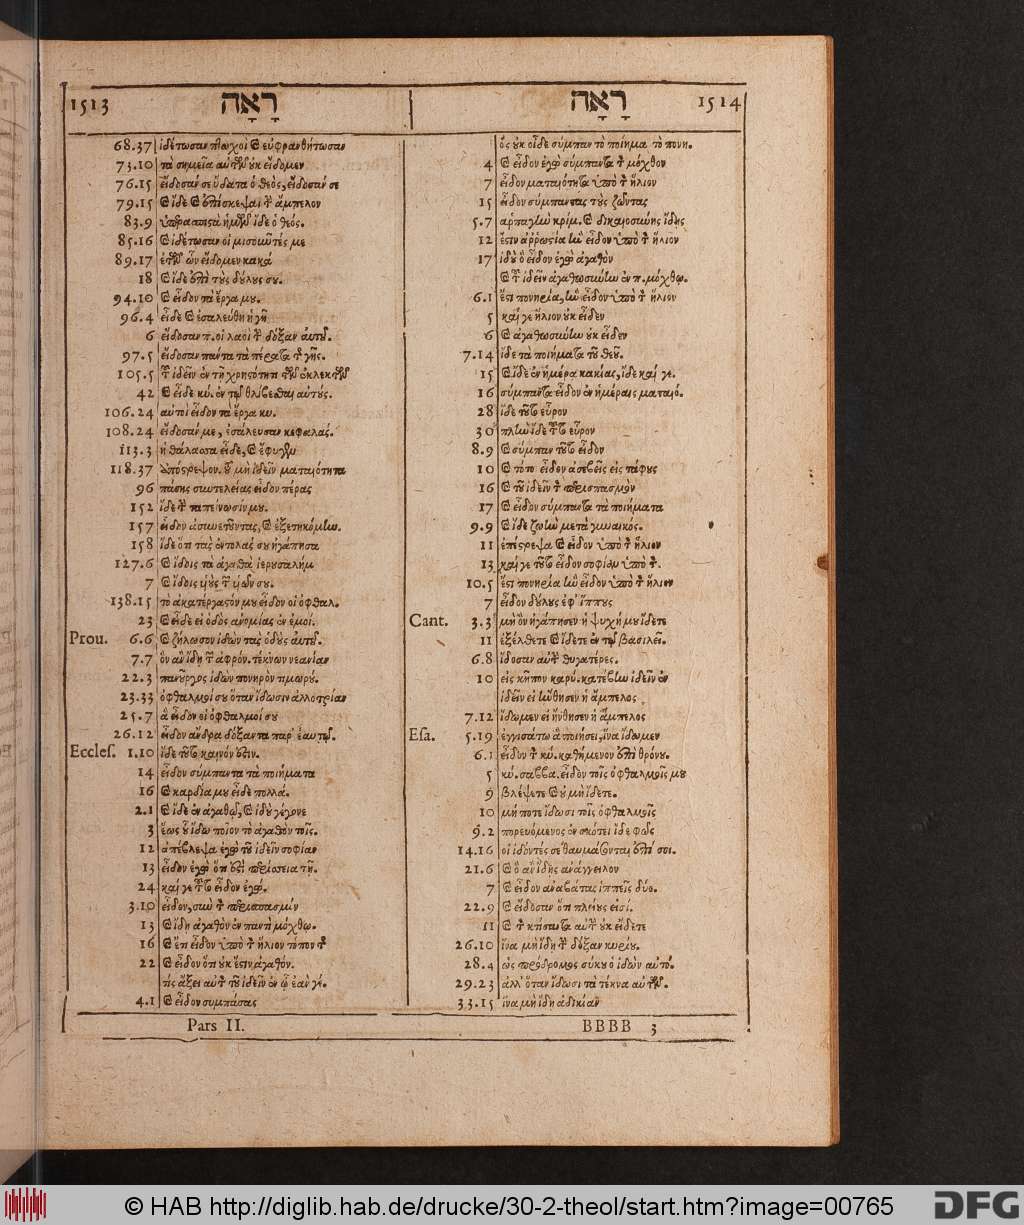 1513 רָאָה
68.37 ἰδέτωσαν πτωχοὶ καὶ εὐφρανθήτωσαν
73.10 τὰ σημεῖα αὐτῶν οὐκ εἴδομεν
76.15 εἴδοσάν σε ὕδατα ὁ θεὸς, εἴδοσάν σε
79.15 καὶ ἴδε καὶ ἐπίσκεψαι τὴν ἄμπελον
83.9 ὑπερασπιστὰ ἡμῶν ἴδε ὁ θεός.
85.16 καὶ ἰδέτωσαν οἱ μισοῦντές με
89.17 ἐτῶν ὧν εἴδομεν κακά
18 καὶ ἴδε ἐπὶ τοὺς δούλους σου.
94.10 καὶ εἶδον τὰ ἔργα μου.
96.4 εἶδε καὶ ἐσαλεύθη ἡ γῆ
6 εἴδοσαν π. οἱ λαοὶ τὴν δόξαν αὐτοῦ.
97.5 εἴδοσαν πάντα τὰ πέρατα τῆς γῆς.
105.5 τοῦ ἰδεῖν ἐν τῇ χρηστότητι τῶν ἐκλεκτῶν
42 καὶ εἶδε κύ. ἐν τῷ θλίβεσθαι αὐτούς.
106.24 αὐτοὶ εἶδον τὰ ἔργα κυ.
108.24 εἴδοσάν με, ἐσάλευσαν κεφαλάς.
113.3 ἡ θάλασσα εἶδε, καὶ ἔφυγεν
118.37 ἀπόστρεψον. τοῦ μὴ ἰδεῖν ματαιότητα
96 πάσης συντελείας εἶδον πέρας
152 ἴδε τὴν ταπείνωσίν μου.
157 εἶδον ἀσυνετοῦντας, καὶ ἐξετηκόμην.
158 ἴδε ὅτι τὰς ἐντολάς σου ἠγάπησα
127.6 καὶ ἴδοις τὰ ἀγαθὰ ἱερουσαλήμ
7 καὶ ἴδοις υἱοὺς τῶν υἱῶν σου.
138.15 τὸ ἀκατέργαστόν μου εἶδον οἱ ὀφθαλ.
23 καὶ εἶδε εἰ ὁδὸς ἀνομίας ἐν ἐμοί.
Prou. 6.6 καὶ ζήλωσον ἰδὼν τὰς ὁδοὺς αὐτοῦ.
7.7 ὃν ἂν ἴδῃ τῶν ἀφρόν. τέκνων νεανίαν
22.3 πανοῦργος ἰδὼν πονηρὸν τιμωρου.
23.33 ὀφθαλμοί σου ὅταν ἴδωσιν ἀλλοτρίαν
25.7 ἃ εἶδον οἱ ὀφθαλμοί σου
26.12 εἶδον ἄνδρα δόξαντα παρ' ἑαυτῷ.
Eccles. 1.10 ἴδε τοῦτο καινόν ἐστιν.
14 εἶδον σύμπαντα τὰ ποιήματα
16 καὶ καρδία μου εἶδε πολλά.
2.1 καὶ ἴδε ἐν ἀγαθῷ, καὶ ἰδοὺ γέγονε
3 ἕως οὗ ἴδω ποῖον τὸ ἀγαθὸν τοῖς.
12 ἐπέβλεψα ἐγὼ τοῦ ἰδεῖν σοφίαν
13 εἶδον ἐγὼ ὅτι ἐστὶ περίσσεια τῇ.
24 καί γε τοῦτο εἶδον ἐγώ.
3.10 εἶδον, σὺν τὸν περισπασμόν
13 καὶ ἴδῃ ἀγαθὸν ἐν παντὶ μόχθῳ.
16 καὶ ἔτι εἶδον ὑπὸ τὸν ἥλιον τόπον τῆς
22 καὶ εἶδον ὅτι οὐκ ἔστιν ἀγαθόν.
τίς ἄξει αὐτὸν τοῦ ἰδεῖν ἐν ᾧ ἐὰν γέ.
4.1 καὶ εἶδον συμπάσας
Pars II.
רָאָה 1514
ὃς οὐκ οἶδε σύμπαν τὸ ποίημα τὸ πονη.
4 καὶ εἶδον ἐγὼ σύμπαντα τὸν μόχθον
7 εἶδον ματαιότητα ὑπὸ τὸν ἥλιον
15 εἶδον σύμπαντας τοὺς ζῶντας
5.7 ἁρπαγὴν κρίμ. καὶ δικαιοσύνης ἴδῃς
12 ἔστιν ἀῤῥωστία ἣν εἶδον ὑπὸ τὸν ἥλιον
17 ἰδοὺ ὃ εἶδον ἐγὼ ἀγαθὸν
καὶ τοῦ ἰδεῖν ἀγαθωσύνην ἐν π. μόχθῳ.
6.1 ἔστι πονηρία, ἣν εἶδον ὑπὸ τὸν ἥλιον
5 καί γε ἥλιον οὐκ εἶδεν
6 καὶ ἀγαθωσύνην οὐκ εἶδεν
7.14 ἴδε τὰ ποιήματα τοῦ θεοῦ.
15 καὶ ἴδε ἐν ἡμέρᾳ κακίας, ἴδε καί γε.
16 σύμπαντα εἶδον ἐν ἡμέραις ματαιό.
28 ἴδε τοῦτο εὗρον
30 πλὴν ἴδε τοῦτο εὗρον
8.9 καὶ σύμπαν τοῦτο εἶδον
10 καὶ τότε εἶδον ἀσεβεῖς εἰς τάφους
16 καὶ τοῦ ἰδεῖν τὸν περισπασμὸν
17 καὶ εἶδον σύμπαντα τὰ ποιήματα
9.9 καὶ ἴδε ζωὴν μετὰ γυναικός.
11 ἐπέστρεψα καὶ εἶδον ὑπὸ τὸν ἥλιον
13 καί γε τοῦτο εἶδον σοφίαν ὑπὸ τόν.
10.5 ἔστι πονηρία ἣν εἶδον ὑπὸ τὸν ἥλιον
7 εἶδον δούλους ἐφ' ἵππους
Cant. 3.3 μὴ ὃν ἠγάπησεν ἡ ψυχή μου ἴδετε
11 ἐξέλθετε καὶ ἴδετε ἐν τῷ βασιλεῖ.
6.8 ἴδοσαν αὐτὴν θυγατέρες.
10 εἰς κῆπον καρύ. κατέβην ἰδεῖν ἐν
ἰδεῖν εἰ ἤνθησεν ἡ ἄμπελος
7.12 ἴδωμεν εἰ ἤνθησεν ἡ ἄμπελος
Esa. 5.19 ἐγγισάτω ἃ ποιήσει, ἵνα ἴδωμεν
6.1 εἶδον τὸν κύ. καθήμενον ἐπὶ θρόνου.
5 κύ. σαββα. εἶδον τοῖς ὀφθαλμοῖς μου
9 βλέψετε καὶ οὐ μὴ ἴδετε.
10 μήποτε ἴδωσι τοῖς ὀφθαλμοῖς
9.2 πορευόμενος ἐν σκότει ἴδε φῶς
14.16 οἱ ἰδόντές σε θαυμάσονται ἐπί σοι.
21.6 καὶ ὃ ἂν ἴδῃς ἀνάγγειλον
7 καὶ εἶδον ἀναβάτας ἱππεῖς δύο.
22.9 καὶ εἴδοσαν ὅτι πλείους εἰσί.
11 καὶ τὸν κτίσαντα αὐτὴν οὐκ εἴδετε
26.10 ἵνα μὴ ἴδῃ τὴν δόξαν κυρίου.
28.4 ὡς πρόδρομος σύκου ὁ ἰδὼν αὐτό.
29.23 ἀλλ' ὅταν ἴδωσι τὰ τέκνα αὐτῶν.
33.15 ἵνα μὴ ἴδῃ ἀδικίαν
BBBB 3
© HAB http://diglib.hab.de/drucke/30-2-theol/start.htm?image=00765 DFG